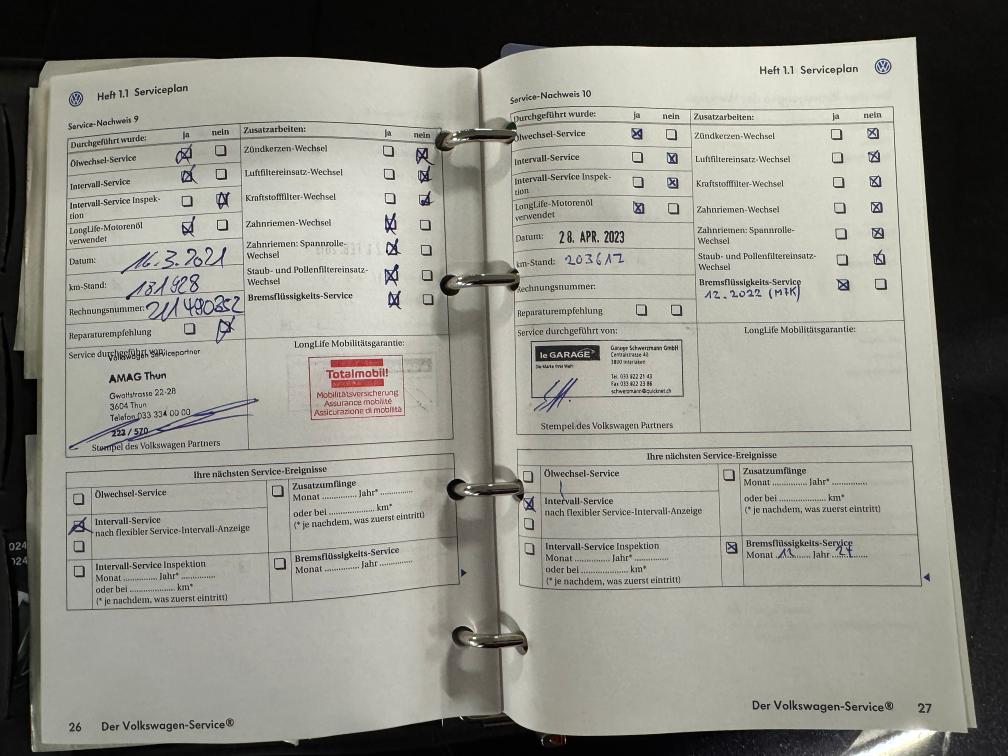 Heft 1.1 Serviceplan
Service-Nachweis 9
Durchgeführt wurde: ja nein
Ölwechsel-Service
Intervall-Service
Intervall-Service Inspek-
tion
LongLife-Motorenöl
verwendet
Datum: 16.3.2021
km-Stand: 181928
Rechnungsnummer: 211490352
Reparaturempfehlung
Zusatzarbeiten: ja nein
Zündkerzen-Wechsel
Luftfiltereinsatz-Wechsel
Kraftstofffilter-Wechsel
Zahnriemen-Wechsel
Zahnriemen: Spannrolle-
Wechsel
Staub- und Pollenfiltereinsatz-
Wechsel
Bremsflüssigkeits-Service
Service durchgeführt von:
Volkswagen Servicepartner
AMAG Thun
Gwattstrasse 22-28
3604 Thun
Telefon 033 334 00 00
223 / 570
Stempel des Volkswagen Partners
LongLife Mobilitätsgarantie:
Totalmobil!
Mobilitätsversicherung
Assurance mobilité
Assicurazione di mobilità
Ihre nächsten Service-Ereignisse
Ölwechsel-Service
Intervall-Service
nach flexibler Service-Intervall-Anzeige
Intervall-Service Inspektion
Monat ............ Jahr* ............
oder bei .................... km*
(* je nachdem, was zuerst eintritt)
Zusatzumfänge
Monat ............ Jahr* ............
oder bei .................... km*
(* je nachdem, was zuerst eintritt)
Bremsflüssigkeits-Service
Monat ............ Jahr ............
26 Der Volkswagen-Service®
Heft 1.1 Serviceplan
Service-Nachweis 10
Durchgeführt wurde: ja nein
Ölwechsel-Service
Intervall-Service
Intervall-Service Inspek-
tion
LongLife-Motorenöl
verwendet
Datum: 28. APR. 2023
km-Stand: 203617
Rechnungsnummer:
Reparaturempfehlung
Zusatzarbeiten: ja nein
Zündkerzen-Wechsel
Luftfiltereinsatz-Wechsel
Kraftstofffilter-Wechsel
Zahnriemen-Wechsel
Zahnriemen: Spannrolle-
Wechsel
Staub- und Pollenfiltereinsatz-
Wechsel
Bremsflüssigkeits-Service
12.2022 (MFK)
Service durchgeführt von:
le GARAGE
Die Marke Ihrer Wahl
Garage Schwerzmann GmbH
Centralstrasse 43
3800 Interlaken
Tel. 033 822 21 43
Fax 033 822 23 86
schwerzmann@quicknet.ch
Stempel des Volkswagen Partners
LongLife Mobilitätsgarantie:
Ihre nächsten Service-Ereignisse
Ölwechsel-Service
Intervall-Service
nach flexibler Service-Intervall-Anzeige
Intervall-Service Inspektion
Monat ............ Jahr* ............
oder bei .................... km*
(* je nachdem, was zuerst eintritt)
Zusatzumfänge
Monat ............ Jahr* ............
oder bei .................... km*
(* je nachdem, was zuerst eintritt)
Bremsflüssigkeits-Service
Monat ............ Jahr ............
Der Volkswagen-Service® 27